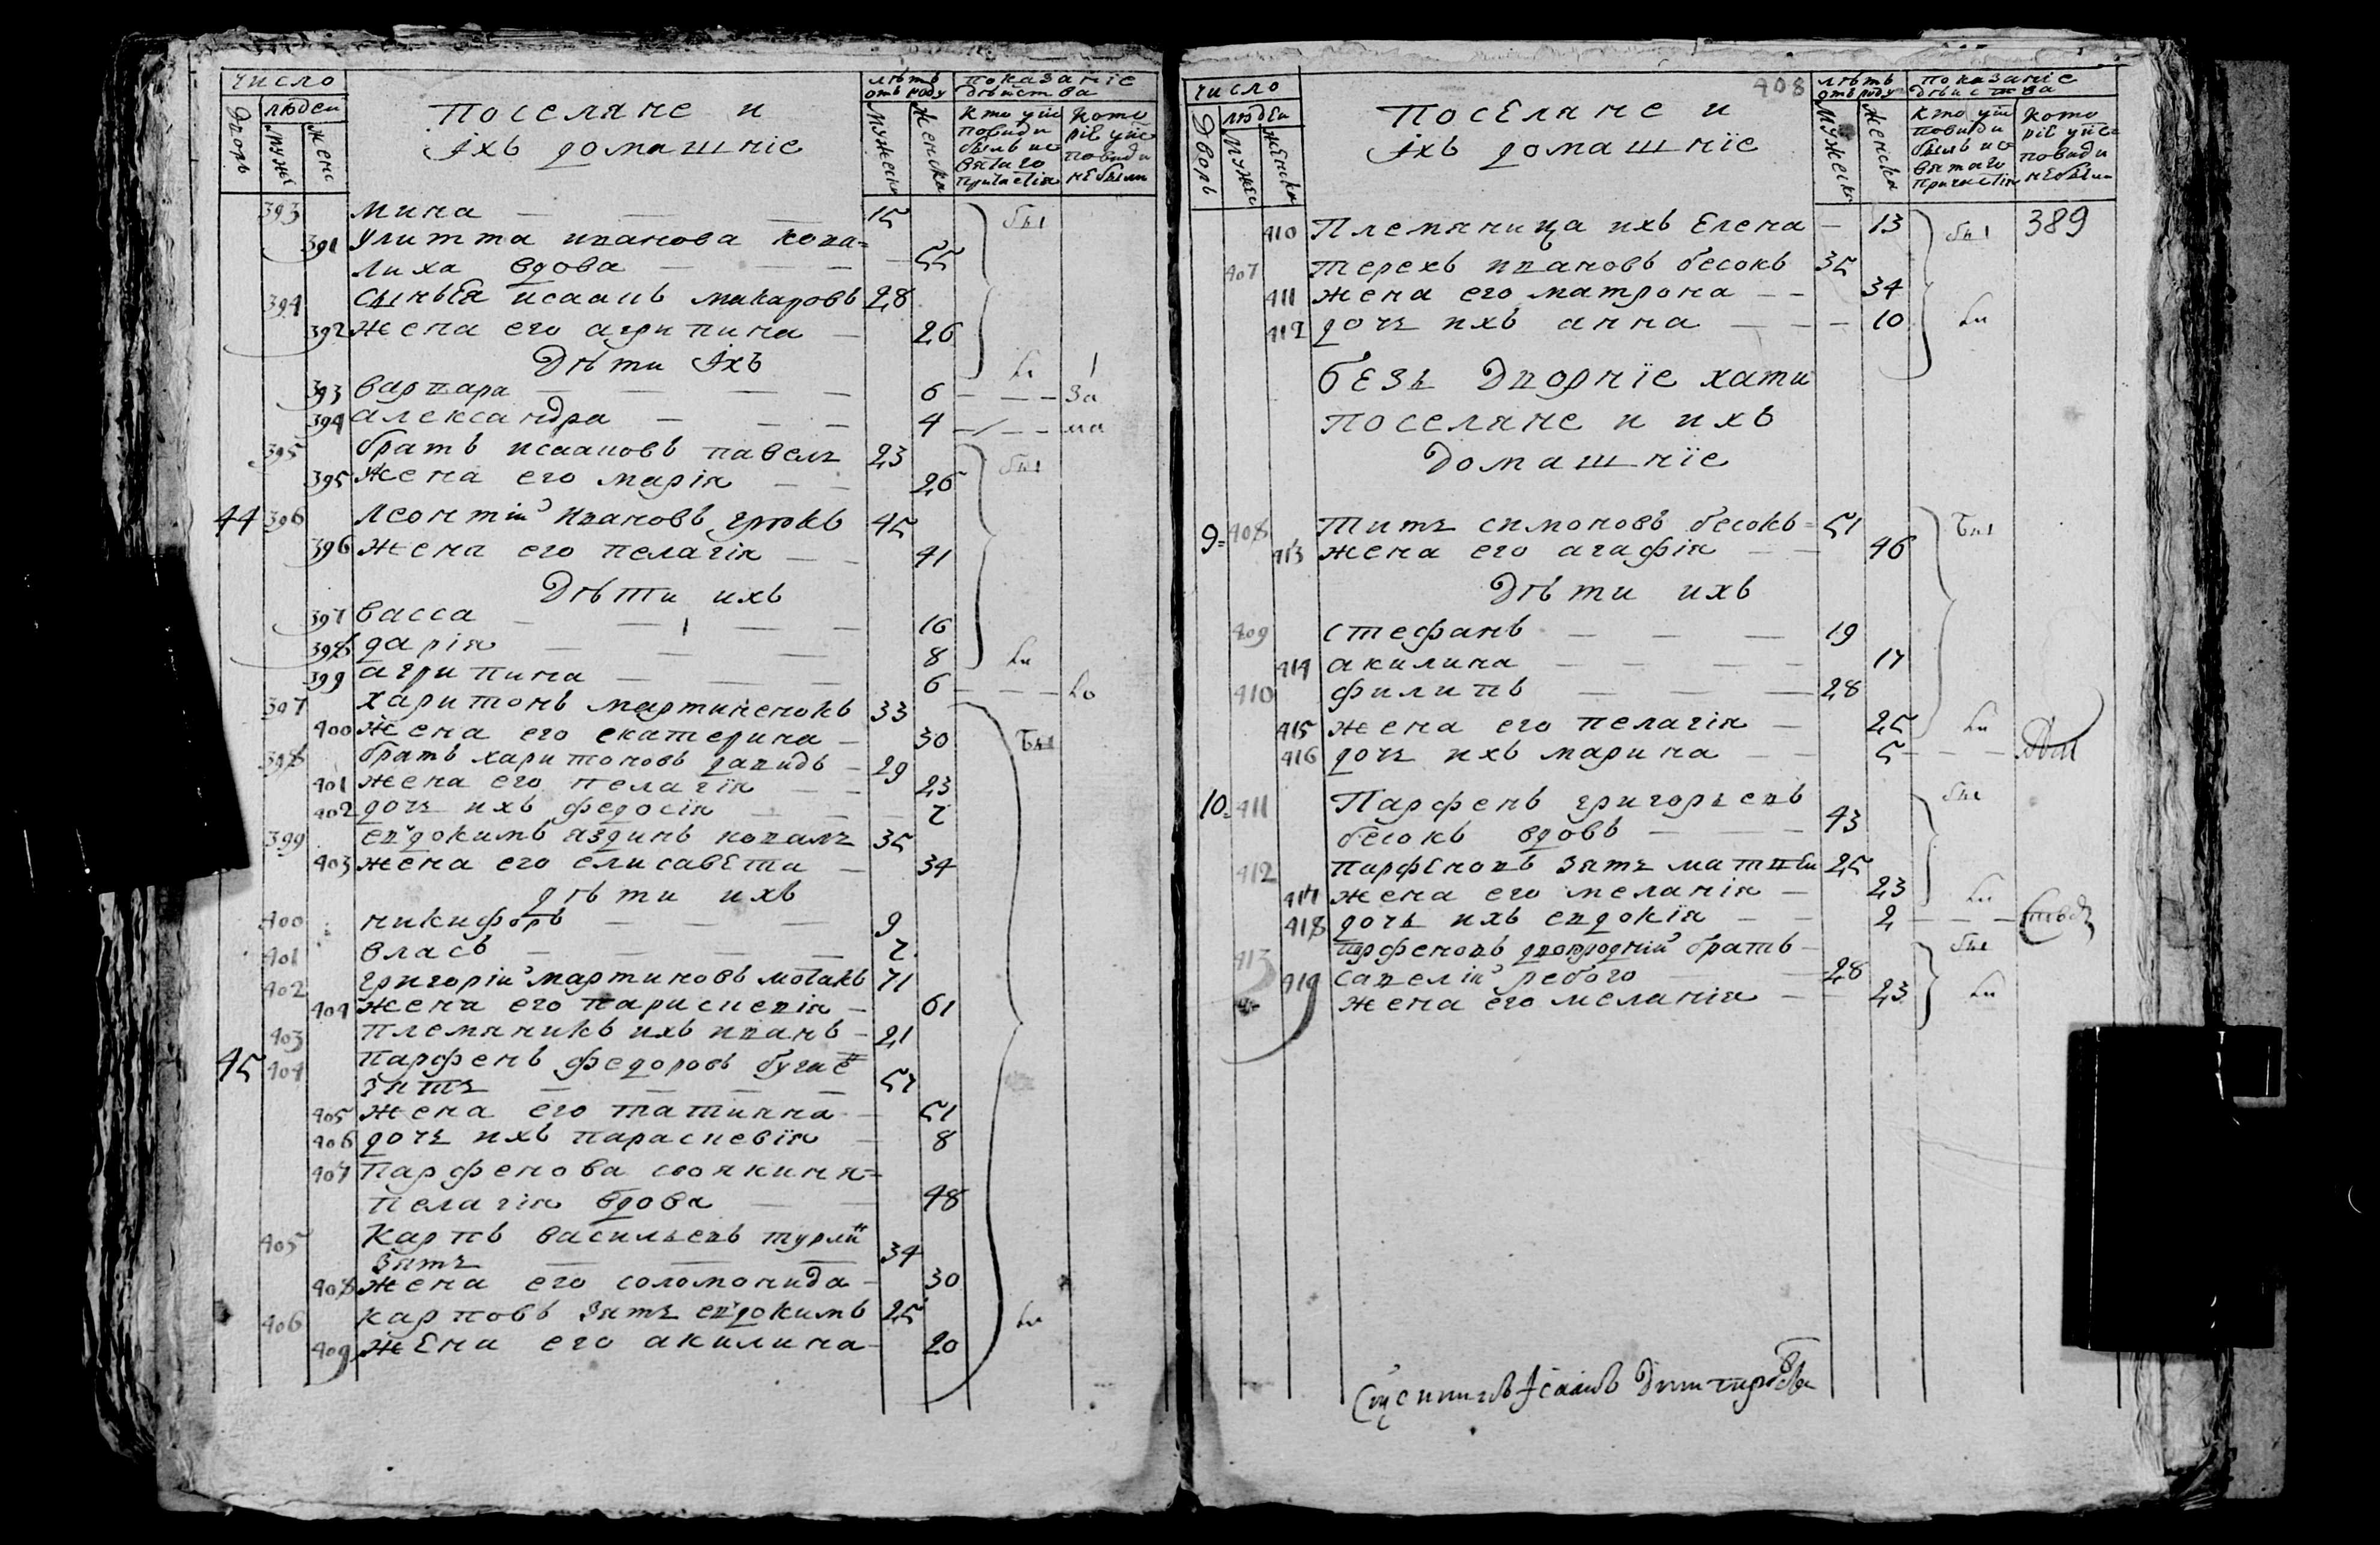 число
людеи
Дворъ
Мужс
Женс
Поселяне и
Іхъ домашніе
лѣтъ
отъ роду
Мужеска
Женска
показаніе
дѣиства
393 мина — — — 15 бы
391 Улитта иванова кова=
лиха вдова — — — 55
394 сынъ Ея исаакъ макаровъ 28
392 жена его агрипина — 26
Дѣти Іхъ ли
393 варвара — — — — 6 — — — За
394 александра — — — 4 — — — ма
395 братъ исааковъ павелъ 23 бы
395 жена его марія — — 26
44 396 леонтій ивановъ 45
396 жена его пелагія — — 41
Дѣти ихъ
397 васса — — — — 16
398 дарія — — — 8 ли
399 агрипина — — — 6 — — — ло
397 харитонъ мартиненокъ 33
400 жена его екатерина — 30 Бы
398 братъ харитоновъ давидъ — 29
401 жена его пелагія — — 23
402 дочь ихъ федосія 2
399 евдокимъ коваль 35
403 жена его елисавета — 34
дѣти ихъ
400 никифоръ — — — 9
401 власъ — — — — 2
402 григорій мартиновъ 71
404 жена его парискевія — 61
403 племяникъ ихъ иванъ — 21
45 404 Парфенъ федоровъ
зять — — — — 57
405 жена его татияна — 51
406 дочь ихъ параскевія — 8
407 Парфенова своякиня=
пелагія вдова — — 48
405 Карпъ васильевъ
зять — — — 34
408 жена его соломонида — 30
406 карповъ зять евдокимъ 25 ли
409 жена его акилина — 20
408
число
людеи
Дворъ
Мужес
Женска
Поселяне и
Іхъ домашніе
лѣтъ
отъ роду
Мужеска
Женска
показаніе
дѣиства
410 Племяница ихъ Елена — 13 бы 389
407 терехъ ивановъ бесокъ 35
411 жена его матрона — — 34
412 дочь ихъ анна — — — 10 ли
безъ Дворніе хати
поселяне и ихъ
Домашніе
9= 408 Титъ симоновъ бесокъ = 51 Бы
413 жена его агафія — — 46
Дѣти ихъ
409 стефанъ — — — 19
414 акилина — — — — 17
410 филипъ — — — — 28
415 жена его пелагія — 25 ли
416 дочь ихъ марина — — 5 — — —
10= 411 Парфенъ григорьевъ бы
бесокъ вдовъ — — — 43
412 парфеновъ зять матвеи 25
417 жена его меланія — 23 ли
418 дочь ихъ евдокія — — 2 — — —
413 парфеновъ двоюродній братъ — бы
савелій ребого 28
419 жена его меланія — — 23 ли